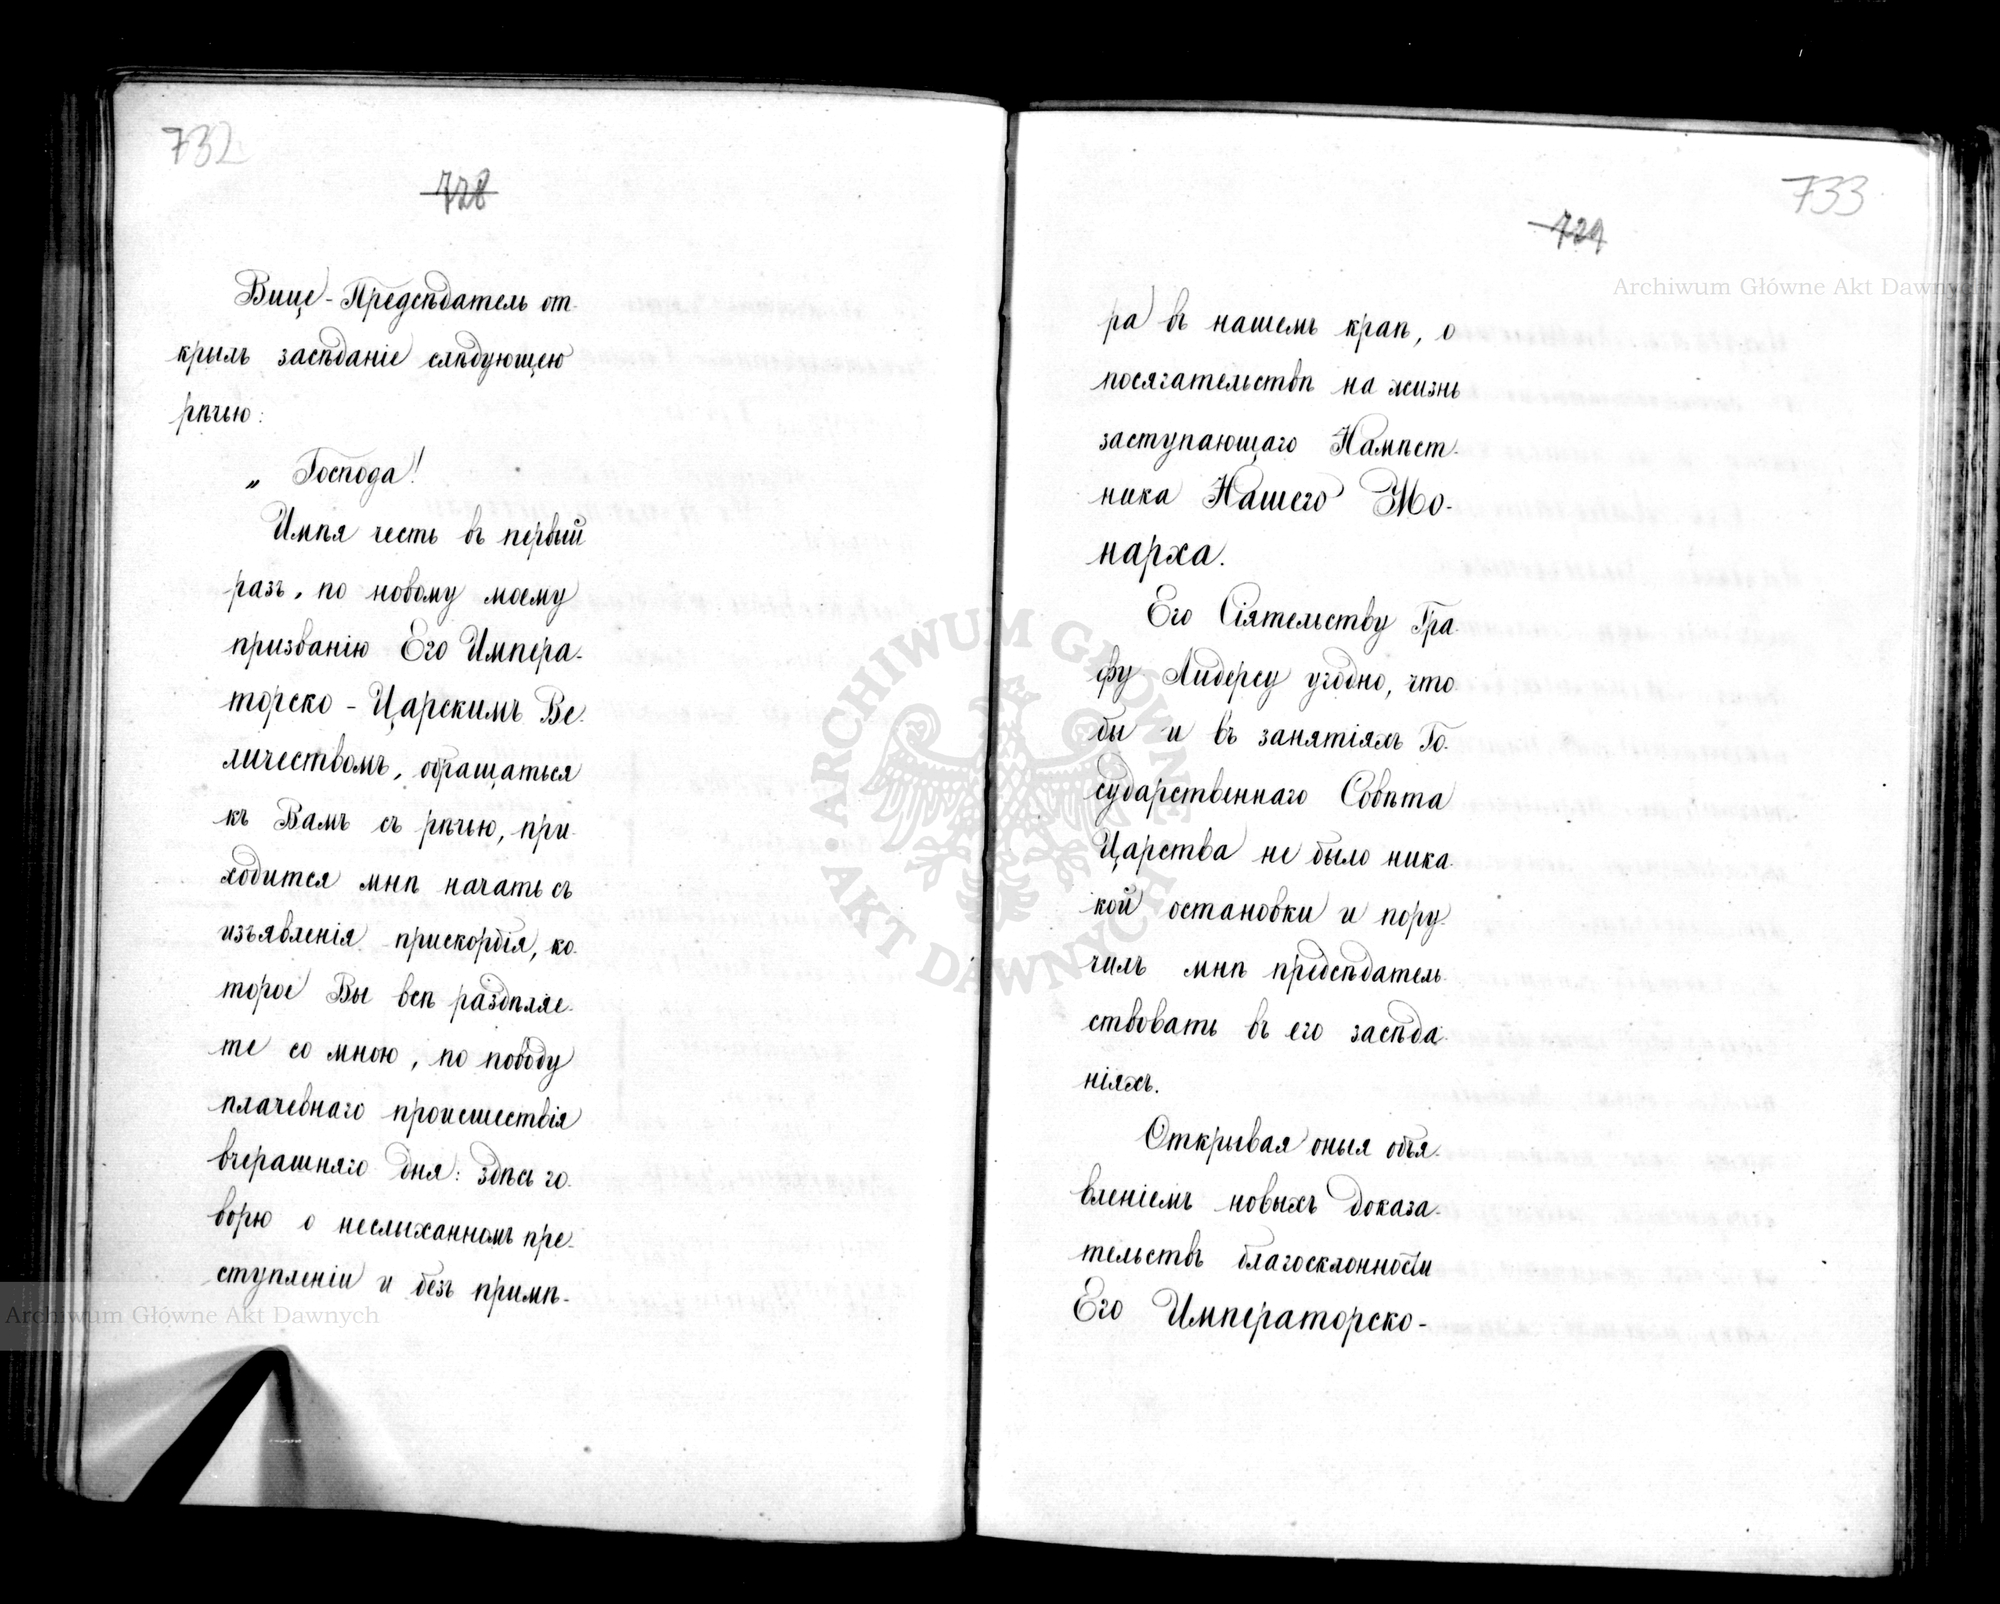 732
728
Вице-Предсѣдатель от-
крылъ засѣданіе слѣдующею
рѣчью:
„ Господа!
Имѣя честь въ первый
разъ, по новому моему
призванію Его Импера-
торско-Царскимъ Ве-
личествомъ, обращаться
къ Вамъ съ рѣчью, при-
ходится мнѣ начать съ
изъявленія прискорбія, ко-
торое Вы всѣ раздѣляе-
те со мною, по поводу
плачевнаго происшествія
вчерашняго дня: здѣсь го-
ворю о неслыханномъ пре-
ступленіи и безъ примѣ-
733
729
ра въ нашемъ краѣ, о
посягательствѣ на жизнь
заступающаго Намѣст-
ника Нашего Мо-
нарха.
Его Сіятельству Гра-
фу Лидерсу угодно, что
бы и въ занятіяхъ Го-
сударственнаго Совѣта
Царства не было ника-
кой остановки и пору-
чилъ мнѣ предсѣдатель-
ствовать въ его засѣда-
ніяхъ.
Открывая оныя объя-
вленіемъ новыхъ доказа-
тельствъ благосклонности
Его Императорско-
Archiwum Główne Akt Dawnych
Archiwum Główne Akt Dawnych
ARCHIWUM GŁÓWNE AKT DAWNYCH